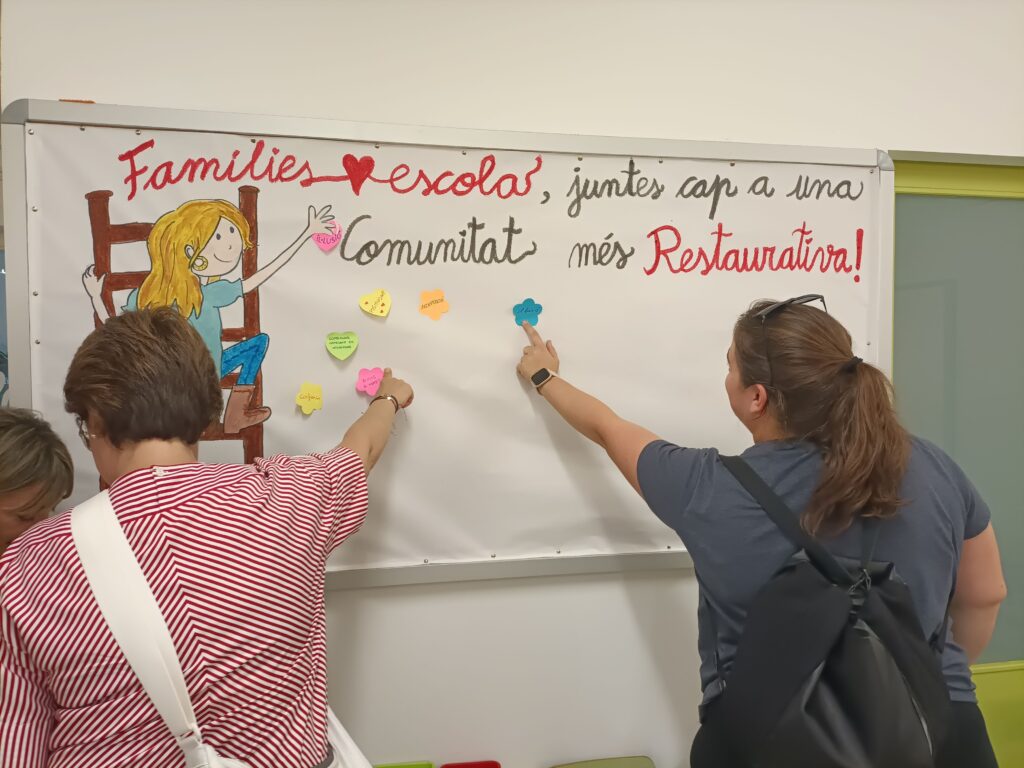 Famílies escola, juntes cap a una
Comunitat més Restaurativa!
Confiança